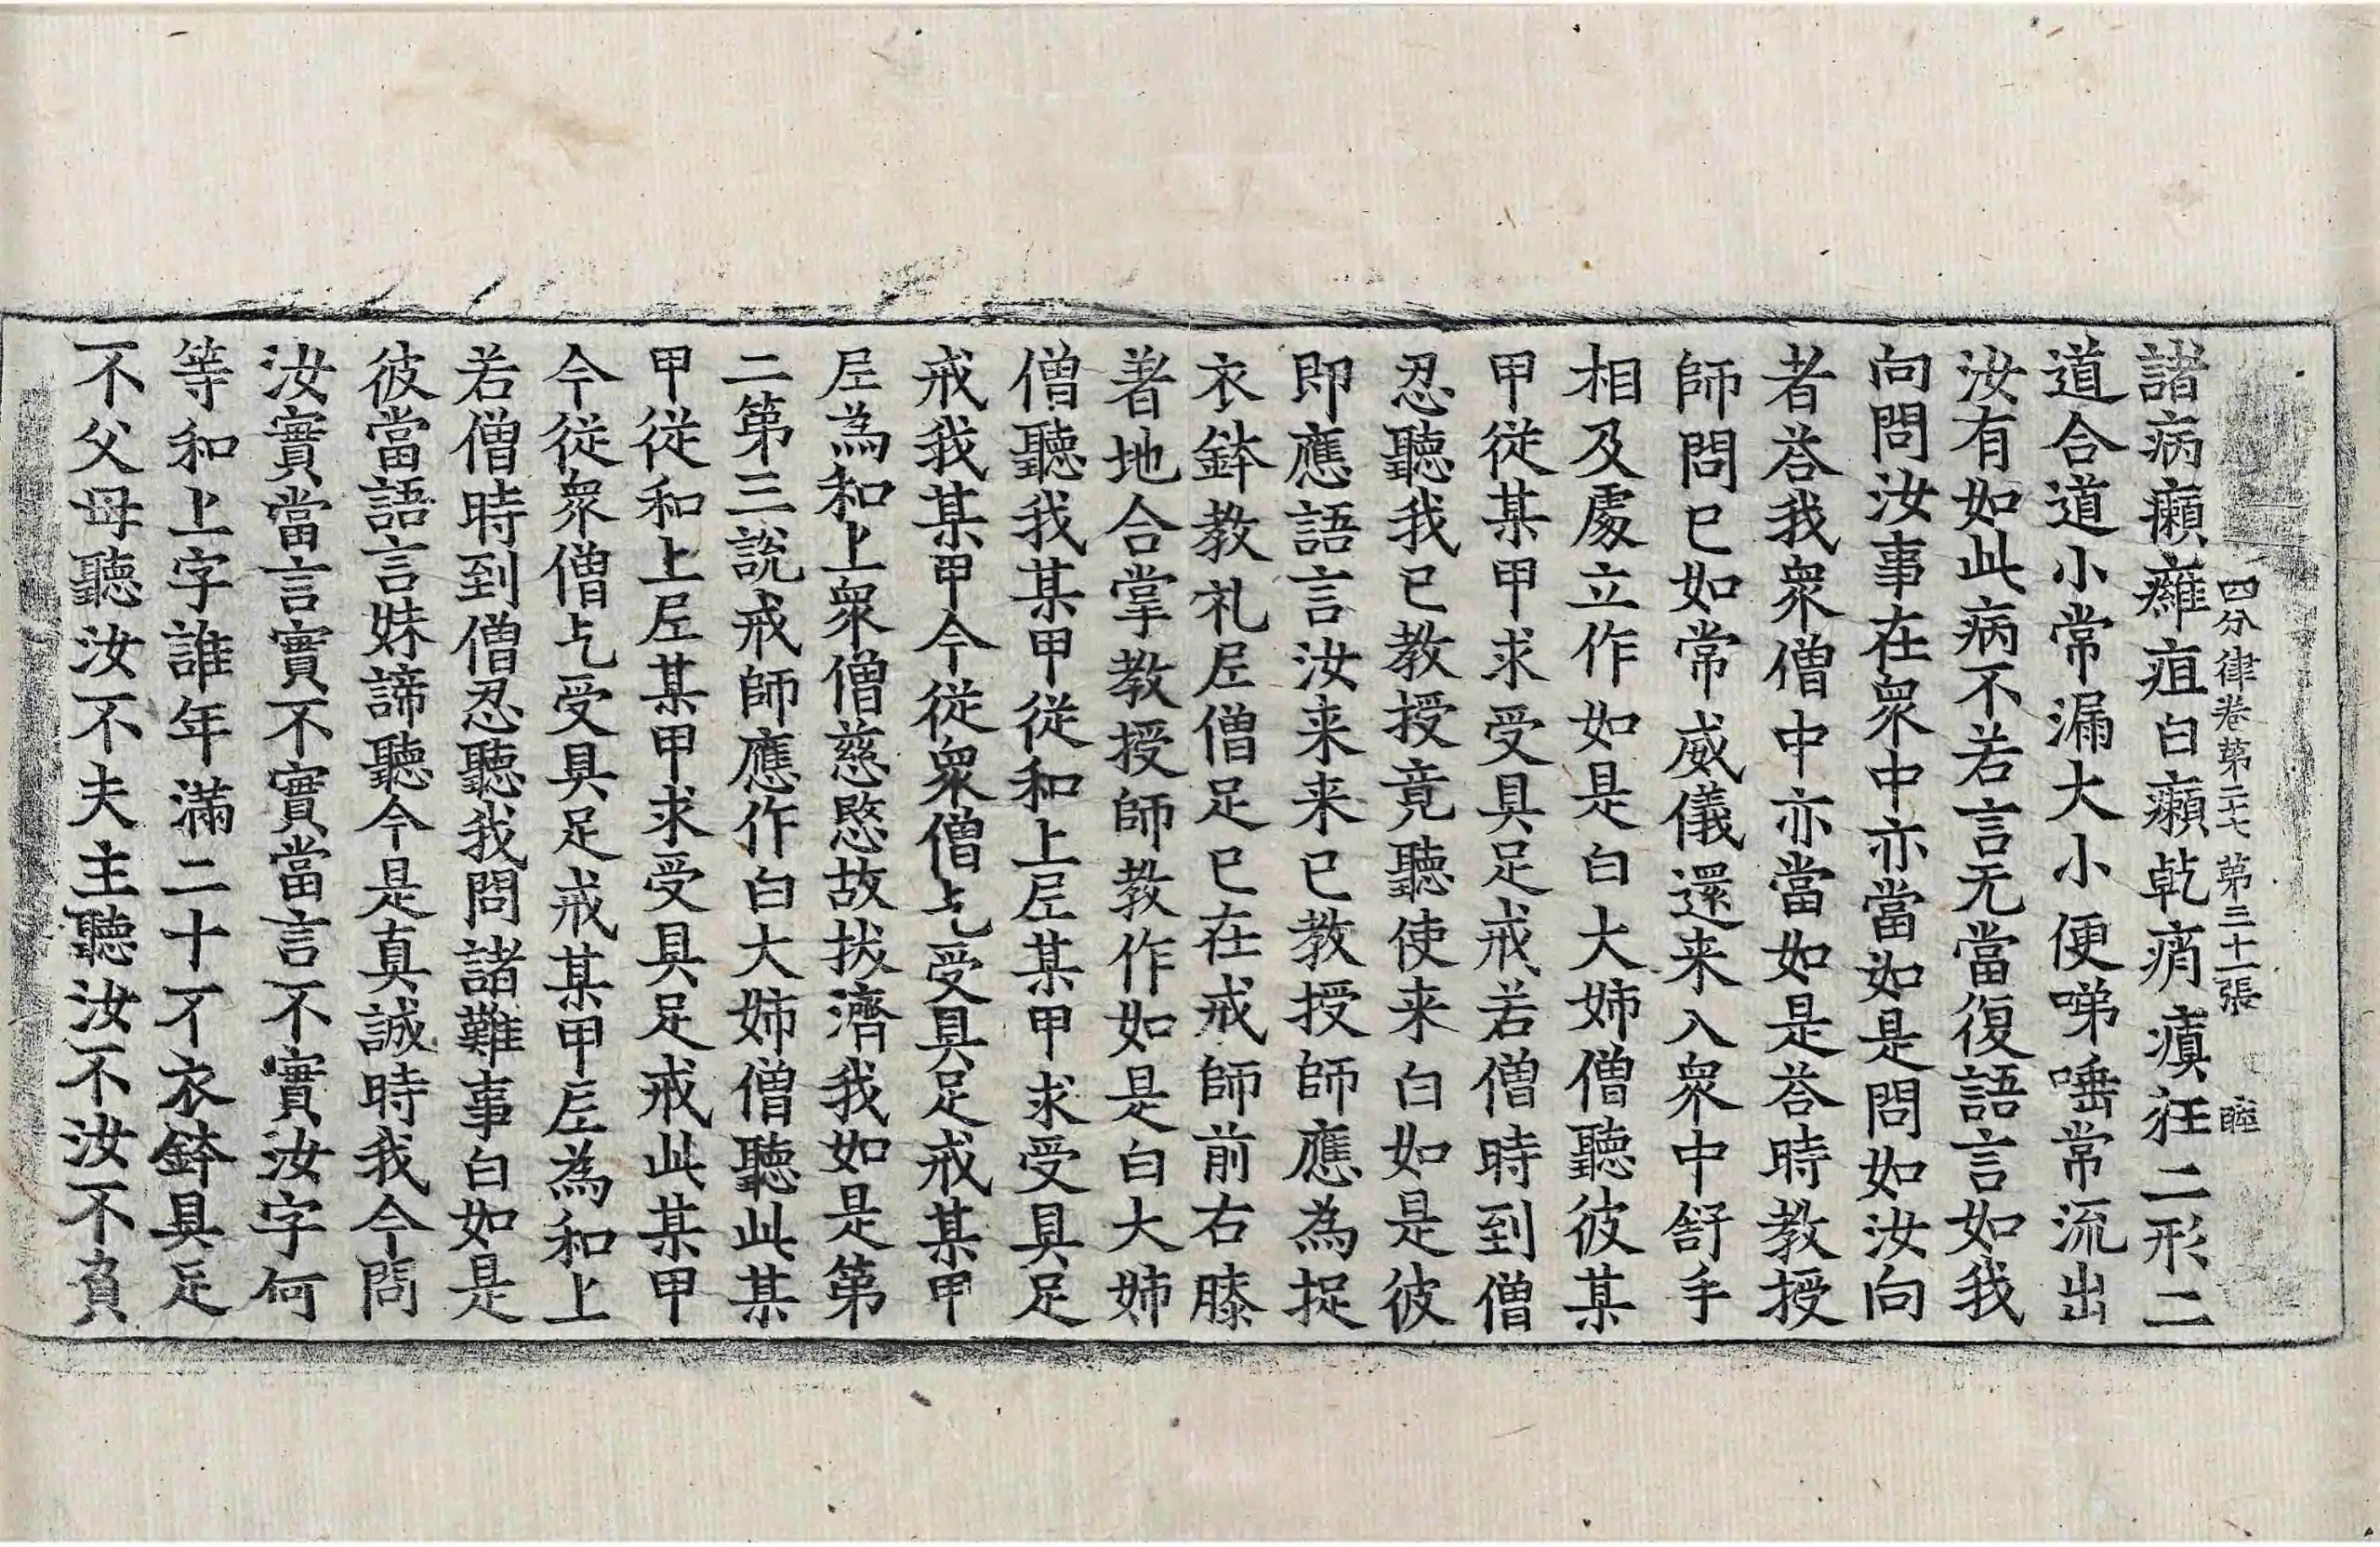 四分律卷第二十七 第三十一張 睦
諸病癩癰疽白癩乾痟瘨狂二形二
道合道小常漏大小便㖒唾常流出
汝有如此病不若言无當復語言如我
向問汝事在衆中亦當如是問如汝向
者荅我衆僧中亦當如是荅時教授
師問已如常威儀還来入衆中舒手
相及處立作如是白大姉僧聽彼某
甲從某甲求受具足戒若僧時到僧
忍聽我已教授竟聽使来白如是彼
即應語言汝来来已教授師應為捉
衣鉢教礼𡰱僧足已在戒師前右膝
著地合掌教授師教作如是白大姉
僧聽我某甲從和上𡰱某甲求受具足
戒我某甲今從衆僧乞受具足戒某甲
𡰱為和上衆僧慈愍故拔濟我如是第
二第三說戒師應作白大姉僧聽此某
甲從和上𡰱某甲求受具足戒此某甲
今從衆僧乞受具足戒某甲𡰱為和上
若僧時到僧忍聽我問諸難事白如是
彼當語言妹諦聽今是真誠時我今問
汝實當言實不實當言不實汝字何
等和上字誰年滿二十不衣鉢具足
不父母聽汝不夫主聽汝不汝不負